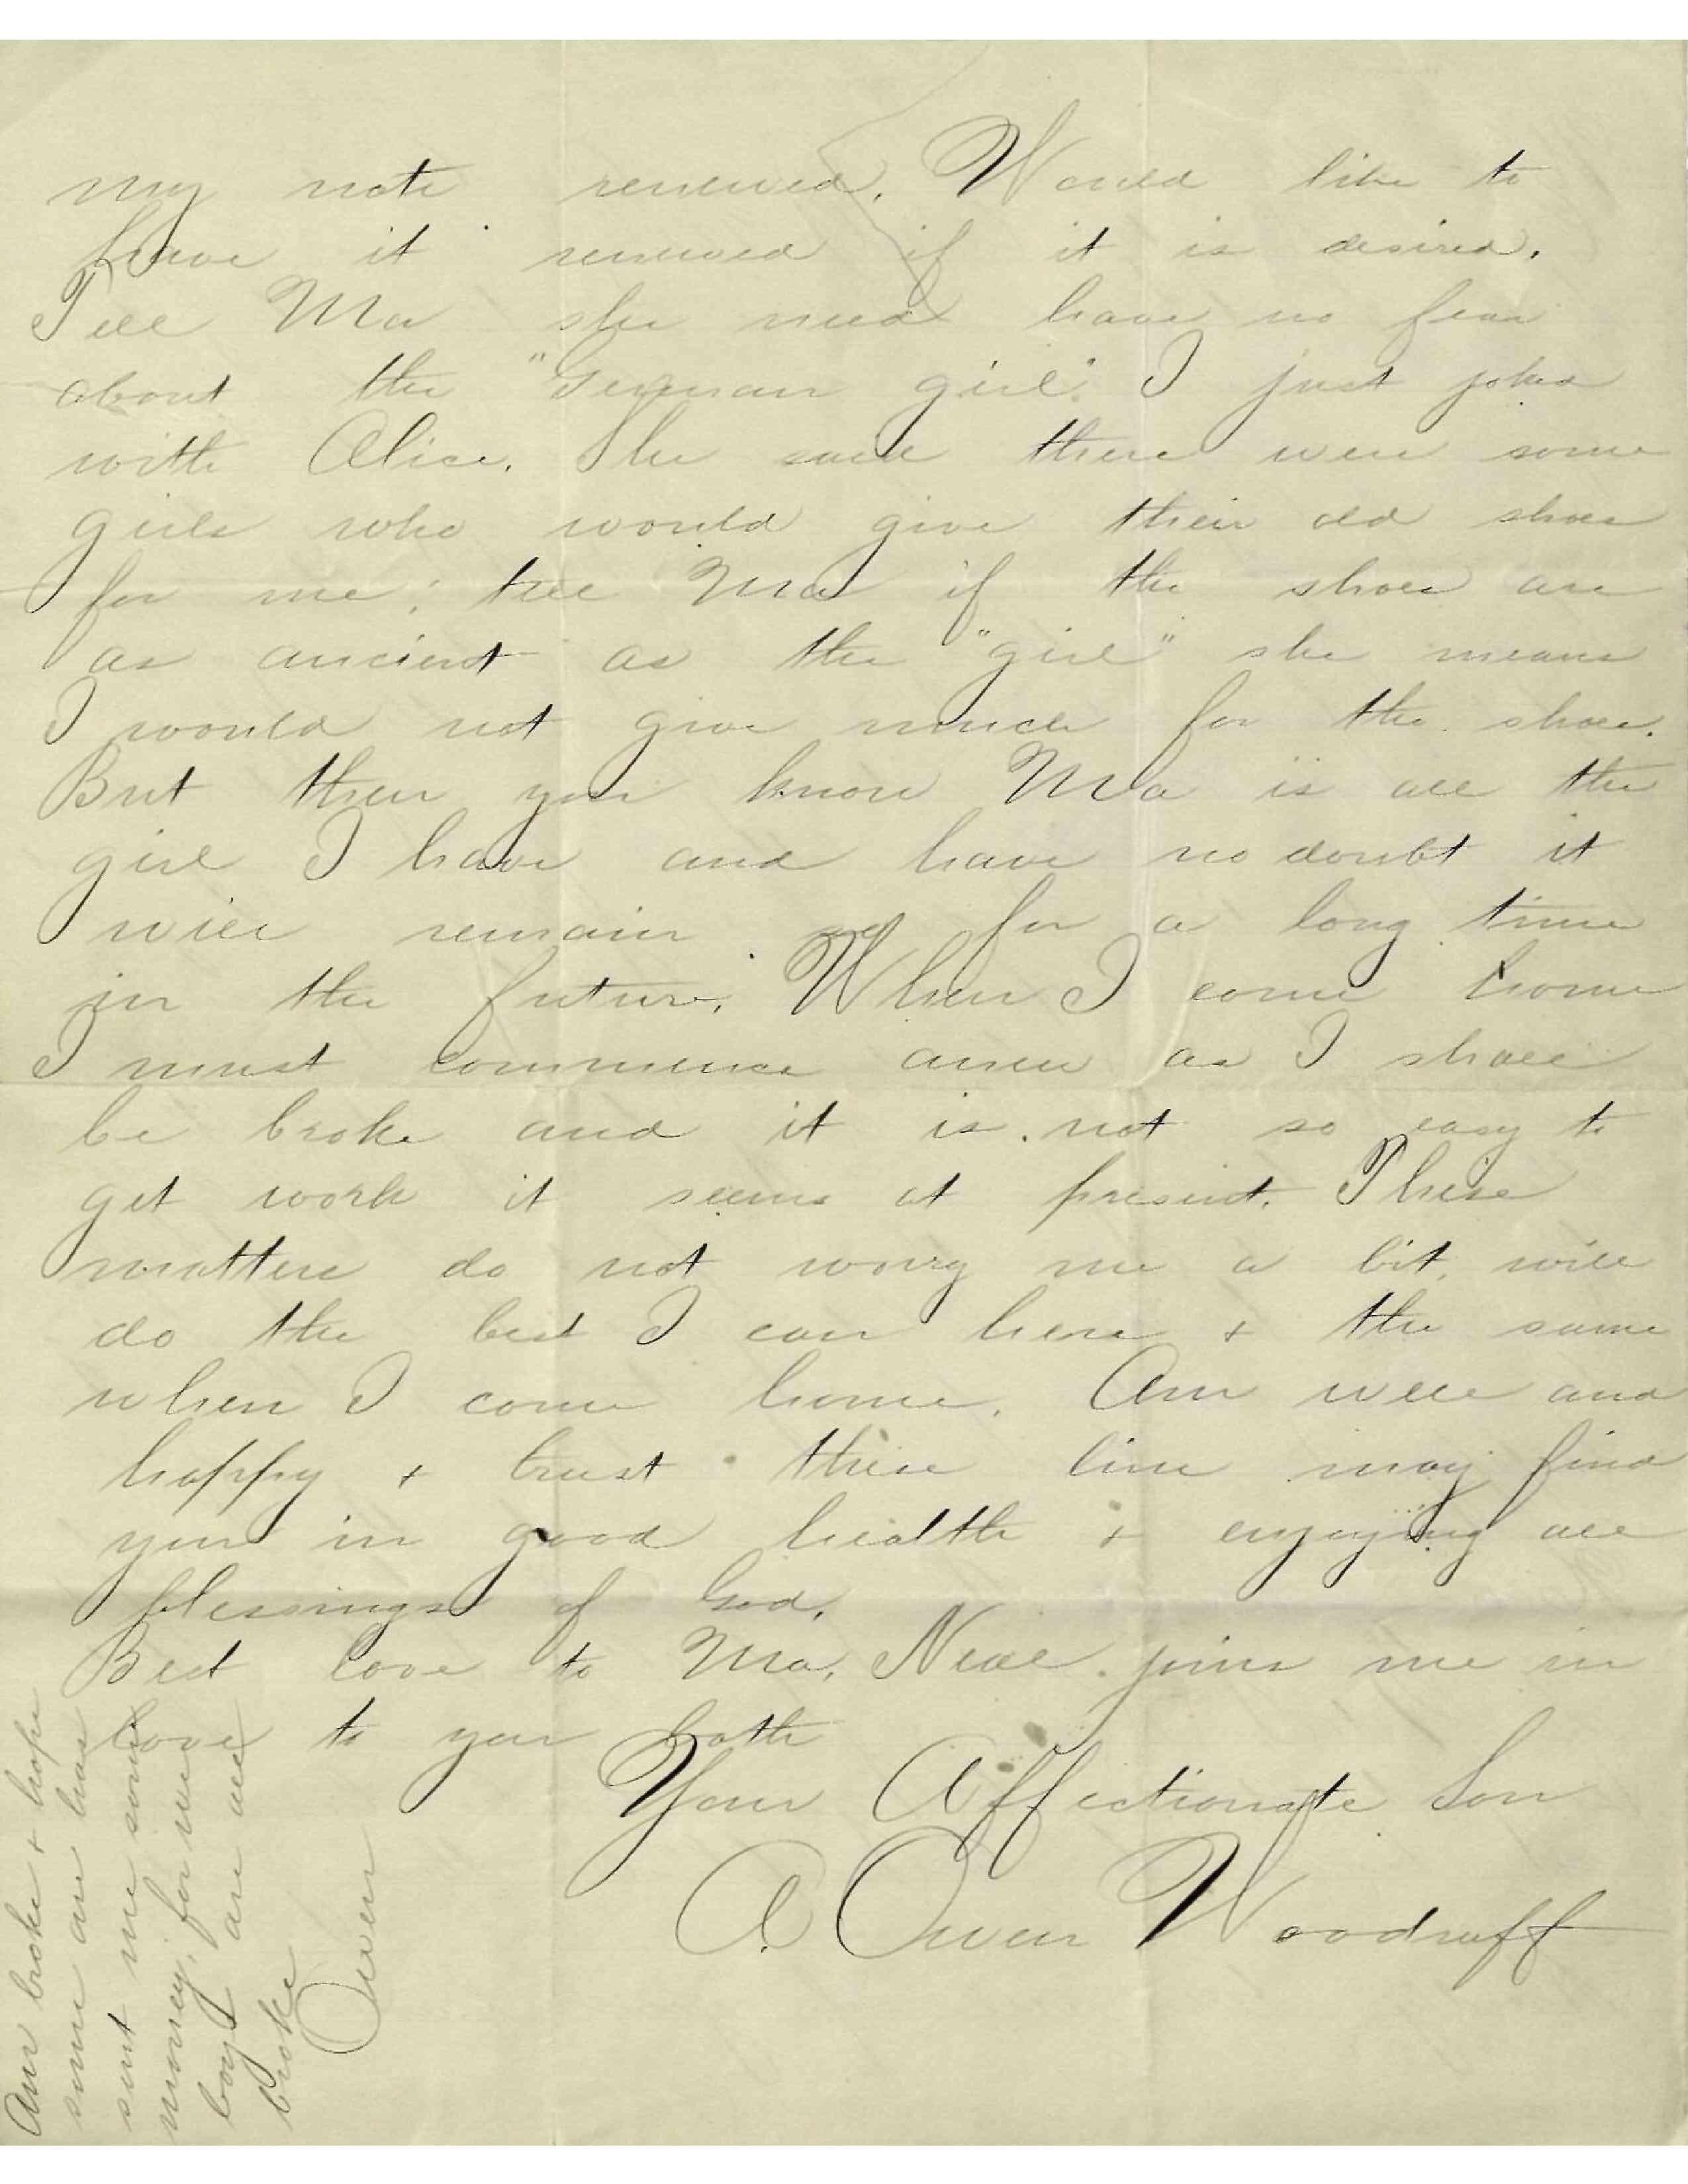 my note renewed. Would like to
have it renewed if it is desired.
Tell Ma she need have no fear
about the "German girl". I just joked
with Alice. She said there were some
girls who would give their old shoes
for me; tell Ma if the shoes are
as ancient as the "girl" she means
I would not give much for the shoes.
But then you know Ma is all the
girl I have and have no doubt it
will remain so for a long time
in the future. When I come home
I must commence anew as I shall
be broke and it is not so easy to
get work it seems at present. These
matters do not worry me a bit, will
do the best I can here + the same
when I come home. Am well and
happy + trust these line may find
you in good health + enjoying all
blessings of God.
Best love to Ma, joins me in
love to you both
Your Affectionate Son
A Owen Woodruff
Am broke + hope
some one has
sent me some
money, for we
boys are all
broke
Owen